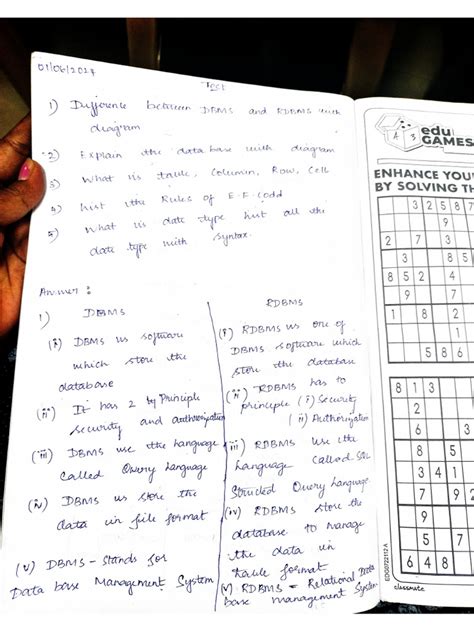 01/06/2024
Test
1) Difference between DBMS and RDBMS with
diagram
2) Explain the database with diagram
3) What is table, Column, Row, Cell
4) list the Rules of E-F-Codd
5) what is date type list all the
date type with syntax.
Answer :
1) DBMS
(i) DBMS is software
which store the
database
(ii) It has 2 Principle
security and authorization
(iii) DBMS use the language
called Query Language
(iv) DBMS is store the
data in file format
(v) DBMS - Stands for
Data base Management System
RDBMS
(i) RDBMS is one of
DBMS software which
store the database
(ii) RDBMS has to
principle (i) Security
(ii) Authorization
(iii) RDBMS use the
Language called
Structed Query Language
(iv) RDBMS store the
database to manage
the data in
table format
(v) RDBMS - Relational Data
base management System
edu
GAMES
ENHANCE YOU
BY SOLVING TH
3 2 5 8
9
2 7 3
3 8
8 5 2 4
9 7
8 1
5 8 6
8 1 3
classmate